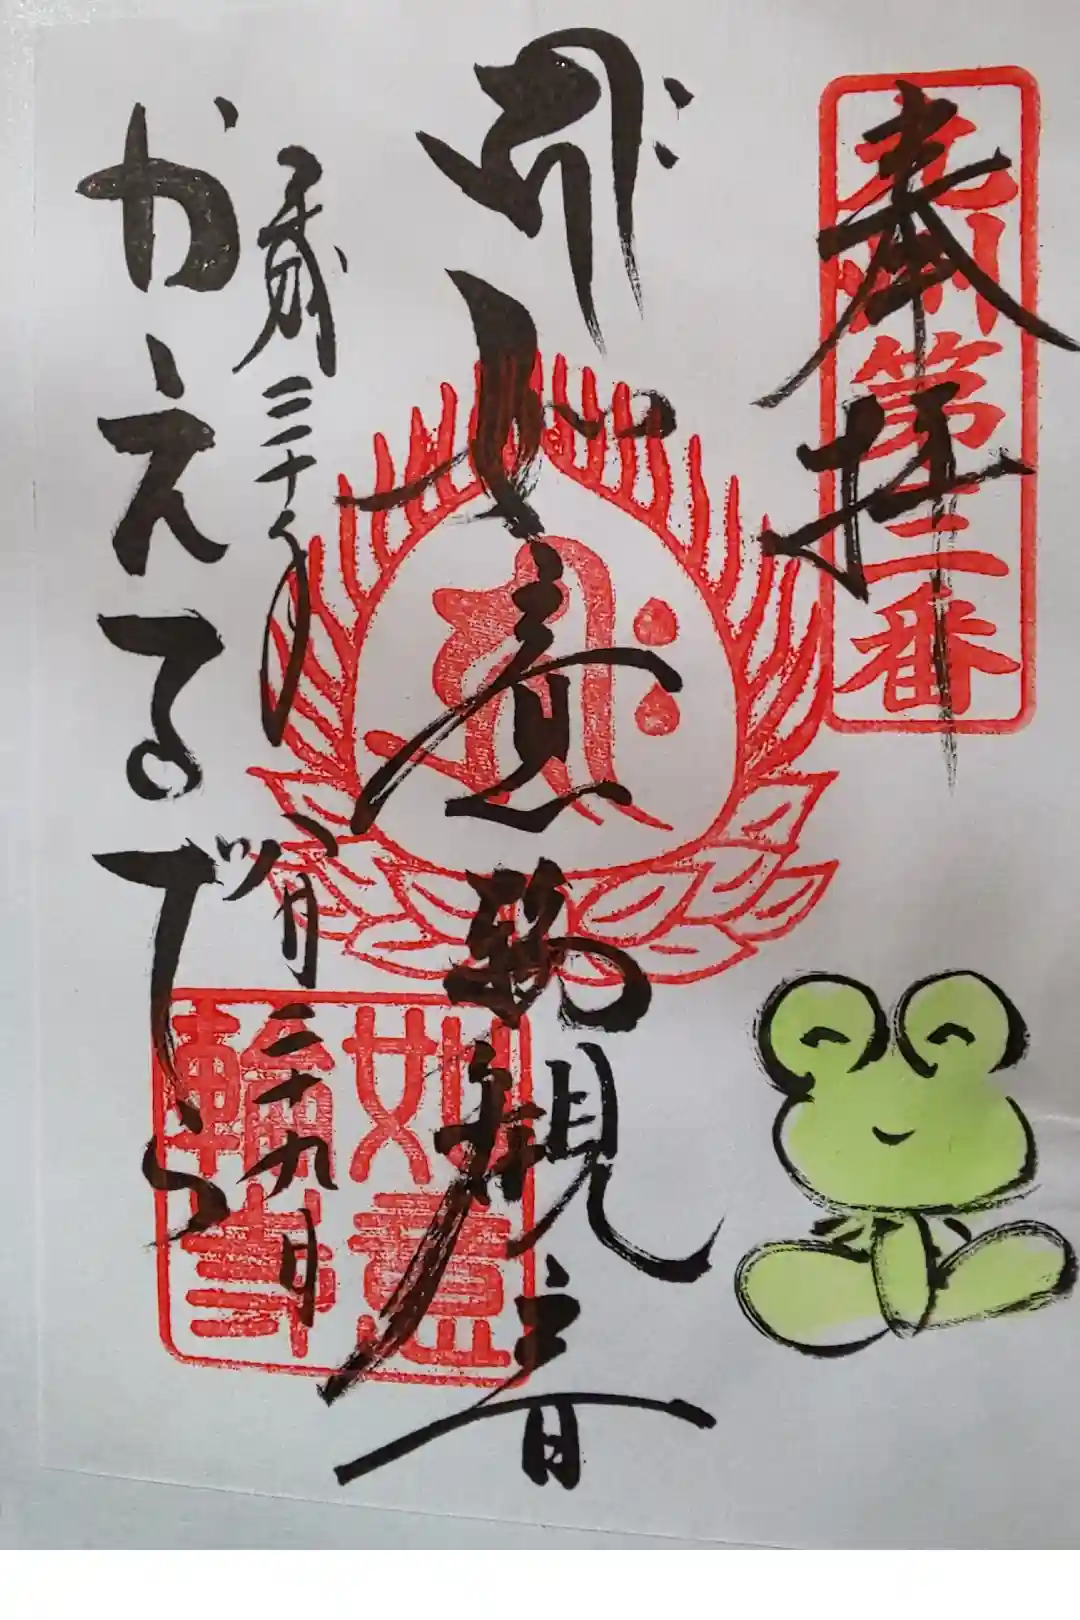 奉拝
九州第三番
ह्रीः
如意輪観音
平成三十年八月二十九日
かえるでら
如意
輪寺